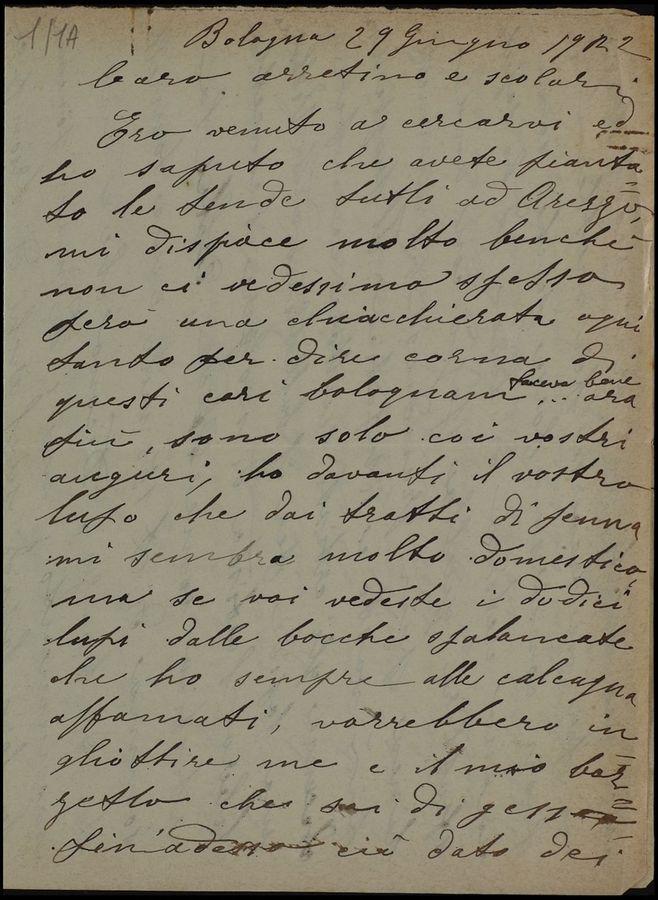 1/1A
Bologna 29 Giugno 1922
Caro arretino e scolari
Ero venuto a cercarvi ed
ho saputo che avete pianta
to le tende tutti ad Arezzo,
mi dispiace molto benché
non ci vedessimo spesso
però una chiacchierata ogni
tanto per dire corna di
questi cari bolognani faceva bene ... ora
più, sono solo coi vostri
auguri, ho davanti il vostro
lupo che dai tratti di penna
mi sembra molto domestico,
ma se voi vedeste i dodici
lupi dalle bocche spalancate
che ho sempre alle calcagna
affamati, vorrebbero in
ghiottire me e il mio boz=
zetto che
fin'adesso ci ò dato dei